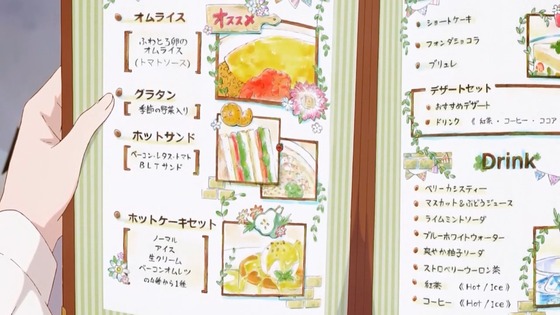 オムライス
オススメ
ふわとろ卵の
オムライス
(トマトソース)
グラタン
季節の野菜入り
ホットサンド
ベーコン・レタス・トマト
BLTサンド
ホットケーキセット
ノーマル
アイス
生クリーム
ベーコンオムレツ
の4種から1種
ショートケーキ
フォンダンショコラ
ブリュレ
デザートセット
おすすめデザート
ドリンク 《紅茶・コーヒー・ココア
Drink
ベリーカシスティー
マスカット&ぶどうジュース
ライムミントソーダ
ブルーホワイトウォーター
爽やか柚子ソーダ
ストロベリーウーロン茶
紅茶 《Hot / Ice》
コーヒー 《Hot / Ice》